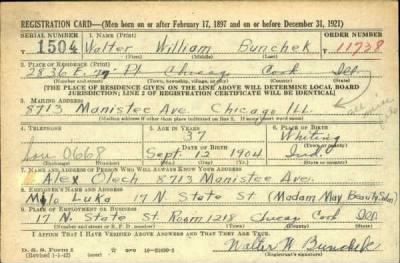 REGISTRATION CARD—(Men born on or after February 17, 1897 and on or before December 31, 1921)
SERIAL NUMBER 1. NAME (Print) ORDER NUMBER
T 1504 Walter William Bunchek T 11738
(First) (Middle) (Last)
2. PLACE OF RESIDENCE (Print)
2836 E. 79 Pl Chicago Cook Ill
(Number and street) (Town, township, village, or city) (County) (State)
[THE PLACE OF RESIDENCE GIVEN ON THE LINE ABOVE WILL DETERMINE LOCAL BOARD
JURISDICTION; LINE 2 OF REGISTRATION CERTIFICATE WILL BE IDENTICAL]
3. MAILING ADDRESS
8713 Manistee Ave. Chicago ILL.
[Mailing address if other than place indicated on line 2. If same insert word same]
4. TELEPHONE 5. AGE IN YEARS 6. PLACE OF BIRTH
37 Whiting
DATE OF BIRTH
Sou 0668 Sept. 12 1904 Ind.
7. NAME AND ADDRESS OF PERSON WHO WILL ALWAYS KNOW YOUR ADDRESS
Alex 8713 Manistee Ave.
8. EMPLOYER'S NAME AND ADDRESS
Luka 17 N State St (Madam May Beauty Salon)
9. PLACE OF EMPLOYMENT OR BUSINESS
17 N. State St. Room 1218 Chicago Cook Ill
(Number and street or R. F. D. number) (Town) (County) (State)
I AFFIRM THAT I HAVE VERIFIED ABOVE ANSWERS AND THAT THEY ARE TRUE.
D. S. S. Form 1
(Revised 1-1-42)
Walter W Bunchek